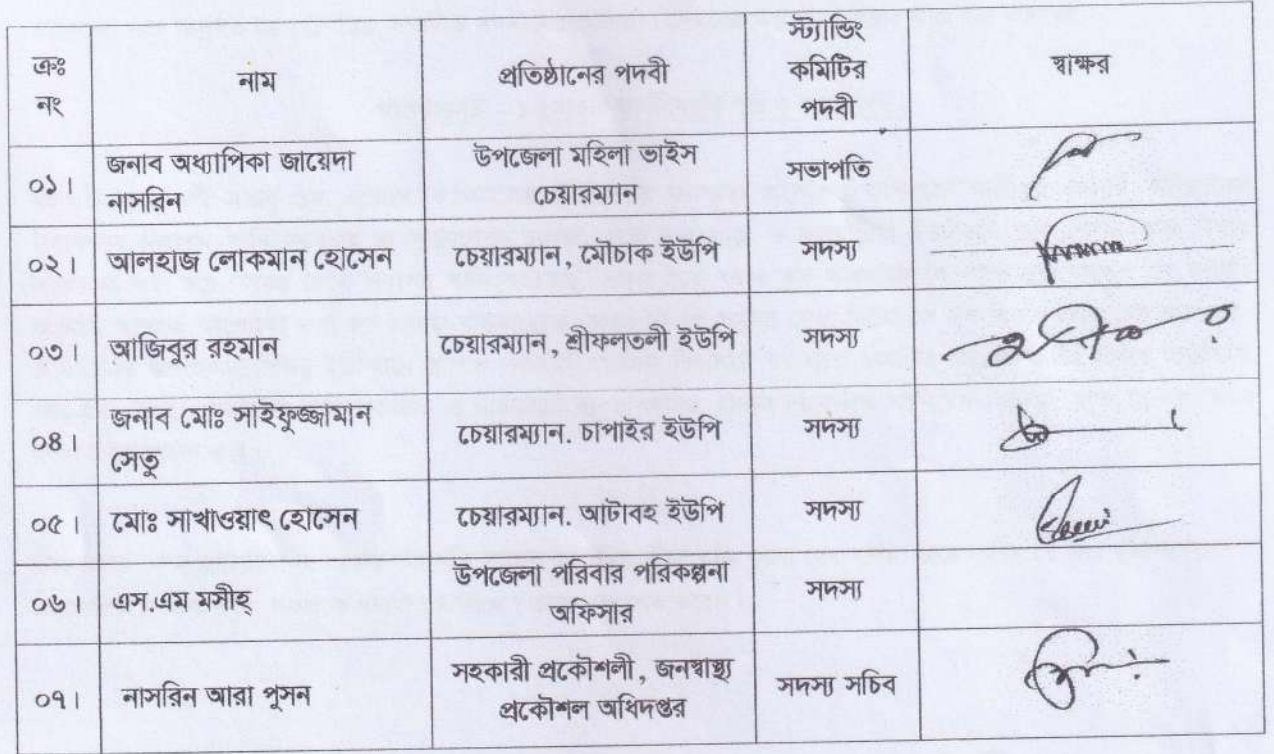 ক্রঃ নং	নাম	প্রতিষ্ঠানের পদবী	স্ট্যান্ডিং কমিটির পদবী	স্বাক্ষর
০১। জনাব অধ্যাপিকা জায়েদা নাসরিন	উপজেলা মহিলা ভাইস চেয়ারম্যান	সভাপতি
০২। আলহাজ লোকমান হোসেন	চেয়ারম্যান, মৌচাক ইউপি	সদস্য
০৩। আজিবুর রহমান	চেয়ারম্যান, শ্রীফলতলী ইউপি	সদস্য
০৪। জনাব মোঃ সাইফুজ্জামান সেতু	চেয়ারম্যান. চাপাইর ইউপি	সদস্য
০৫। মোঃ সাখাওয়াৎ হোসেন	চেয়ারম্যান. আটাবহ ইউপি	সদস্য
০৬। এস.এম মসীহ্	উপজেলা পরিবার পরিকল্পনা অফিসার	সদস্য
০৭। নাসরিন আরা পুসন	সহকারী প্রকৌশলী, জনস্বাস্থ্য প্রকৌশল অধিদপ্তর	সদস্য সচিব